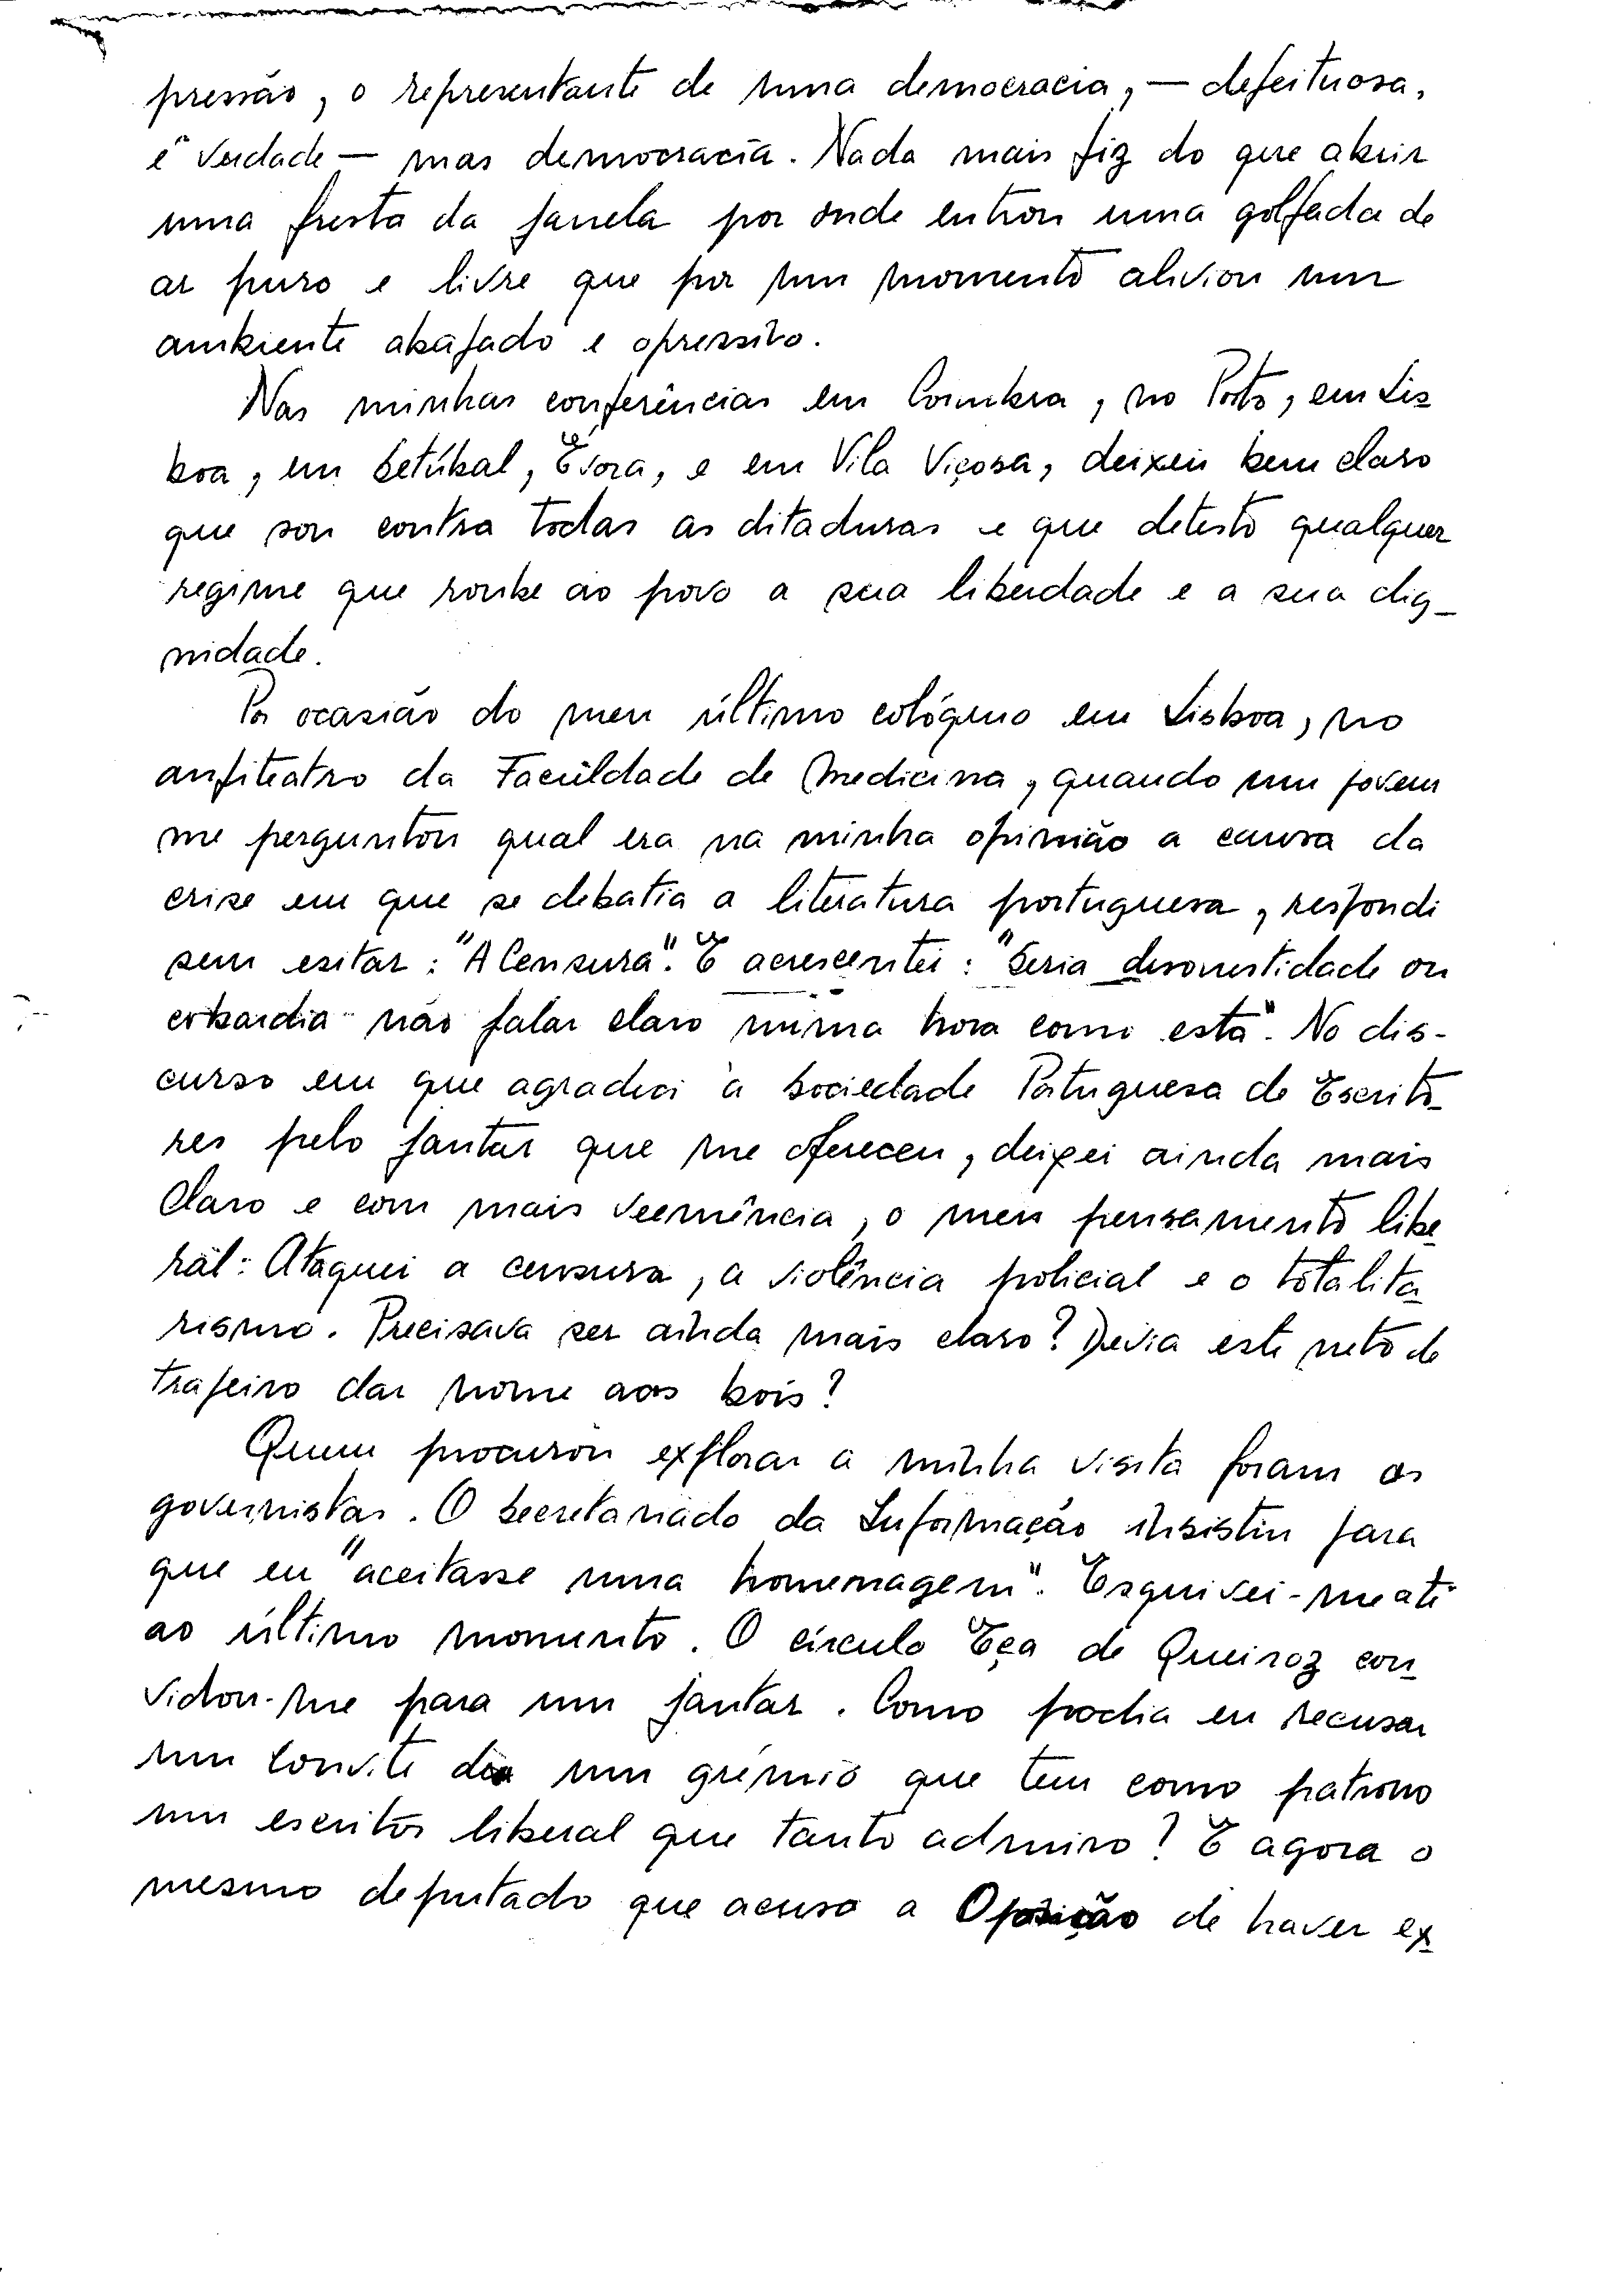 pressão, o representante de uma democracia, — defeituosa,
é verdade — mas democracia. Nada mais fiz do que abrir
uma fresta da janela por onde entrou uma golfada de
ar puro e livre que por um momento aliviou um
ambiente abafado e opressivo.
Nas minhas conferências em Coimbra, no Porto, em Lis
boa, em Setúbal, Évora, e em Vila Viçosa, deixei bem claro
que sou contra todas as ditaduras e que detesto qualquer
regime que roube ao povo a sua liberdade e a sua dig-
nidade.
Por ocasião do meu último colóquio em Lisboa, no
anfiteatro da Faculdade de Medicina, quando um jovem
me perguntou qual era na minha opinião a causa da
crise em que se debatia a literatura portuguesa, respondi
sem esitar: "A Censura". E acrescentei: "Seria desonestidade ou
cobardia não falar claro numa hora como esta". No dis-
curso em que agradeci à Sociedade Portuguesa de Escrito-
res pelo jantar que me ofereceu, deixei ainda mais
claro e com mais veemência, o meu pensamento libe-
ral: Ataquei a censura, a violência policial e o totalita-
rismo. Precisava ser ainda mais claro? Devia este neto de
tropeiro dar nome aos bois?
Quem procurou explorar a minha visita foram os
governistas. O Secretariado da Informação insistiu para
que eu "aceitasse uma homenagem". Esquivei-me até
ao último momento. O círculo Eça de Queiroz con-
vidou-me para um jantar. Como podia eu recusar
um convite de um grêmio que tem como patrono
um escritor liberal que tanto admiro? E agora o
mesmo deputado que acusa a Oposição de haver ex-